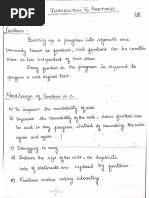 INTRODUCTION TO FUNCTIONS
Functions -
Breaking up a program into segments are
commonly known as functions, each functions can be written
more or less independent of each other.
Every function in the program is supposed to
program a well defined task.
Need/usage of functions in C
a) To improve the readability of code
b) Improves the reusability of the code, same functions can
be used in any program instead of rewriting the code
again and again
c) Debugging is easy
d) Reduces the size of the code, as duplicate
sets of statements are replaced by functions.
e) Functions makes coding interesting.